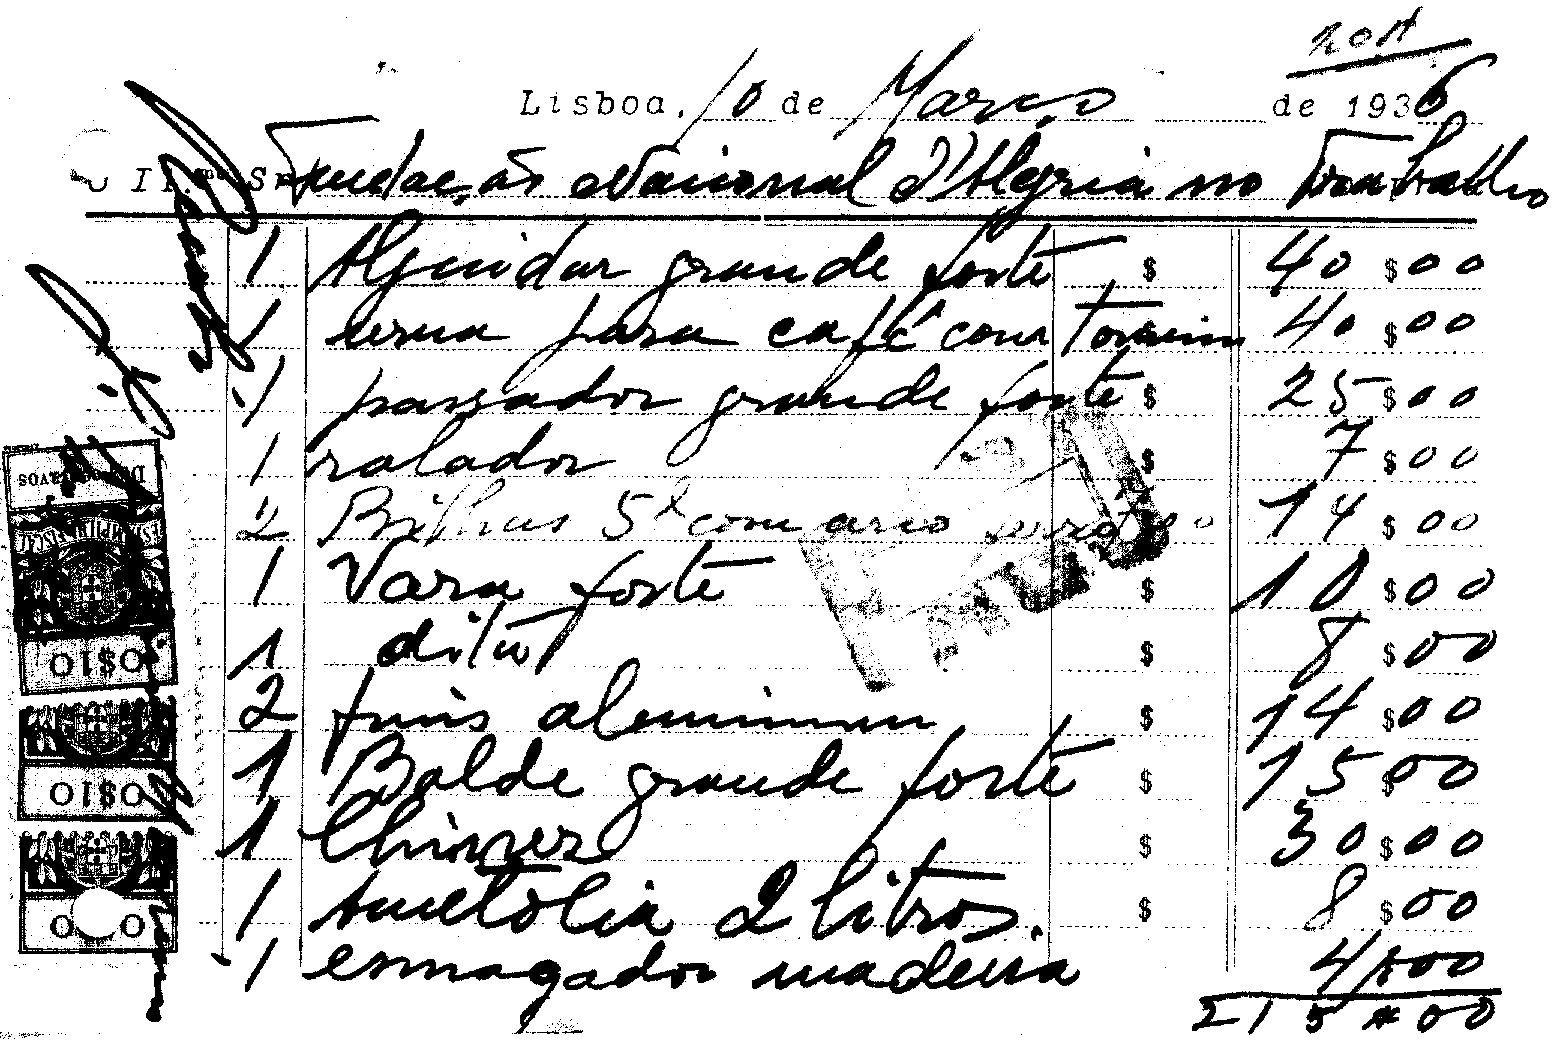 Lisboa, 10 de Março de 1936
Il.mo Sr. Fundação Nacional d'Alegria no Trabalho
1 Alguidar grande forte $ 40 $ 00
1 uma para café com Torneira 40 $ 00
1 passador grande forte $ 25 $ 00
1 ralador $ 7 $ 00
2 Bilhas 5l com arco 14 $ 00
1 Vara forte $ 10 $ 00
1 dita $ 8 $ 00
2 funis aluminium $ 14 $ 00
1 Balde grande forte $ 15 $ 00
1 Chinez $ 30 $ 00
1 Amétolia 2 litros. $ 8 $ 00
1 esmagador madeira 4 $ 00
215 $ 00
0$10
0$10